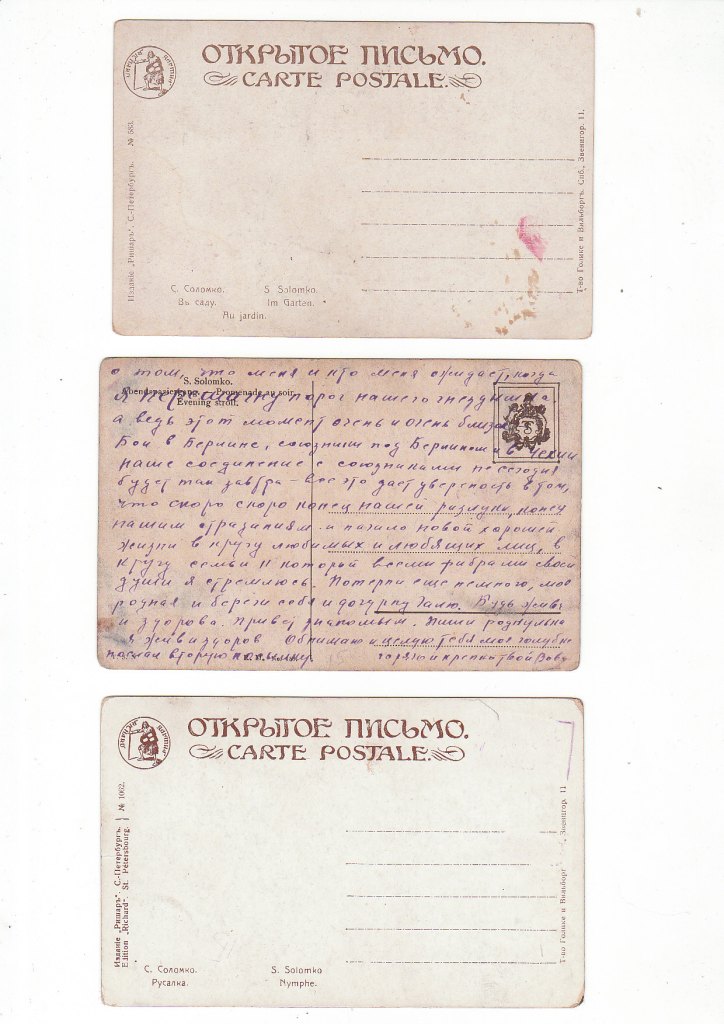 ОТКРЫТОЕ ПИСЬМО.
CARTE POSTALE.
Изданіе „Ришаръ“. С.-Петербургъ. № 583.
Т-во Голике и Вильборгъ. Спб., Звенигор. 11.
С. Соломко. S. Solomko.
Въ саду. Im Garten.
Au jardin.
о том, что меня и кто меня ожидает, когда
S. Solomko.
Abendspaziergang. — Promenade au soir.
Evening stroll.
я перешагну порог нашего гнездышка
а ведь этот момент очень и очень близок
Бои в Берлине, союзники под Берлином и в Чехии
наше соединение с союзниками не сегодня
будет так завтра – все это дает уверенность в том,
что скоро скоро конец нашей разлуки, конец
нашим страданиям и начало новой хорошей
жизни в кругу любимых и любящих лиц, в
кругу семьи к которой всеми фибрами своей
души я стремлюсь. Потерпи еще немного, моя
родная и береги себя и дочурку Галю. Будь жива
и здорова. Привет знакомым. Пиши
я жив и здоров Обнимаю и целую тебя моя голубка
послал вторую посылку горячо и крепко твой Вова
ОТКРЫТОЕ ПИСЬМО.
CARTE POSTALE.
Изданіе „Ришаръ“. С.-Петербургъ.
Edition „Richard“. St. Pétersbourg.
№ 1062.
Т-во Голике и Вильборг Звенигор. 11
С. Соломко. S. Solomko
Русалка. Nymphe.